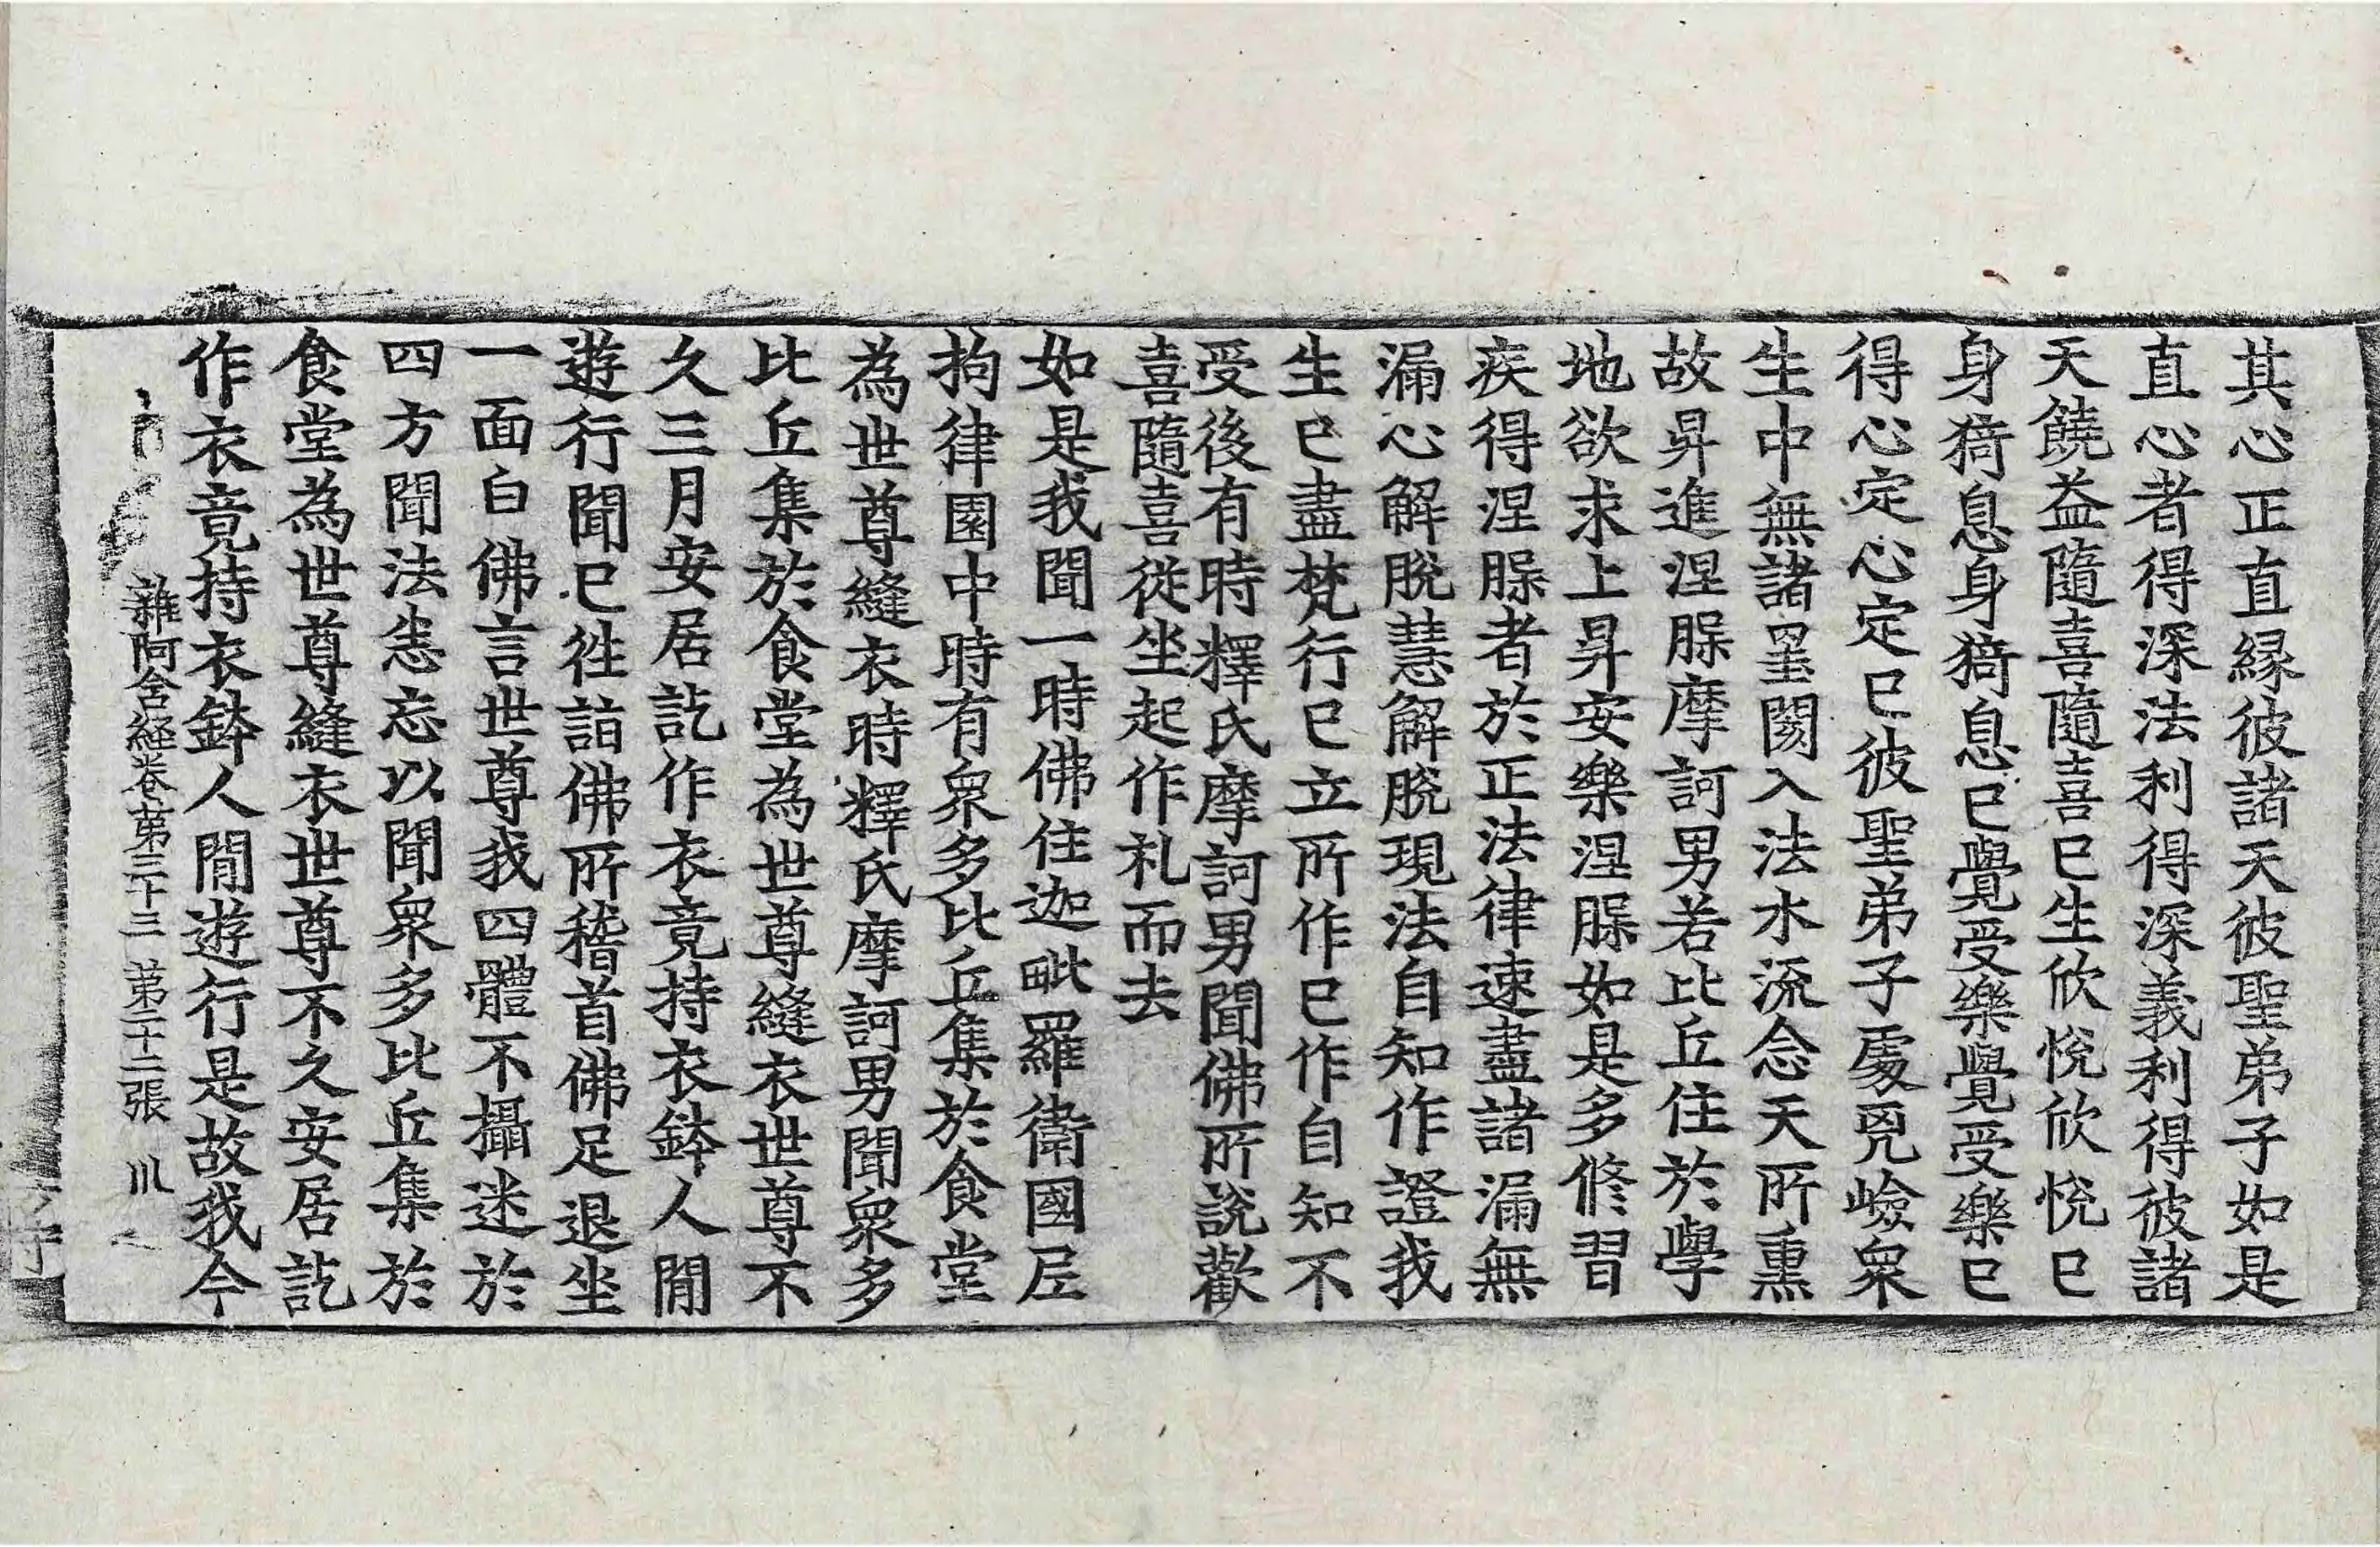 其心正直縁彼諸天彼聖弟子如是
直心者得深法利得深義利得彼諸
天饒益隨喜隨喜已生欣悅欣悅已
身猗息身猗息已覺受樂覺受樂已
得心定心定已彼聖弟子處兇嶮衆
生中無諸罣閡入法水流念天所熏
故昇進涅槃摩訶男若比丘住於學
地欲求上昇安樂涅槃如是多修習
疾得涅槃者於正法律速盡諸漏無
漏心解脫慧解脫現法自知作證我
生已盡梵行已立所作已作自知不
受後有時釋氏摩訶男聞佛所說歡
喜隨喜從坐起作礼而去
如是我聞一時佛住迦毗羅衛國尼
拘律園中時有衆多比丘集於食堂
為世尊縫衣時釋氏摩訶男聞衆多
比丘集於食堂為世尊縫衣世尊不
久三月安居訖作衣竟持衣鉢人閒
遊行聞已徃詣佛所稽首佛足退坐
一面白佛言世尊我四體不攝迷於
四方聞法悉忘以聞衆多比丘集於
食堂為世尊縫衣世尊不久安居訖
作衣竟持衣鉢人閒遊行是故我今
雜阿含経卷苐三十三 苐二十二張 川